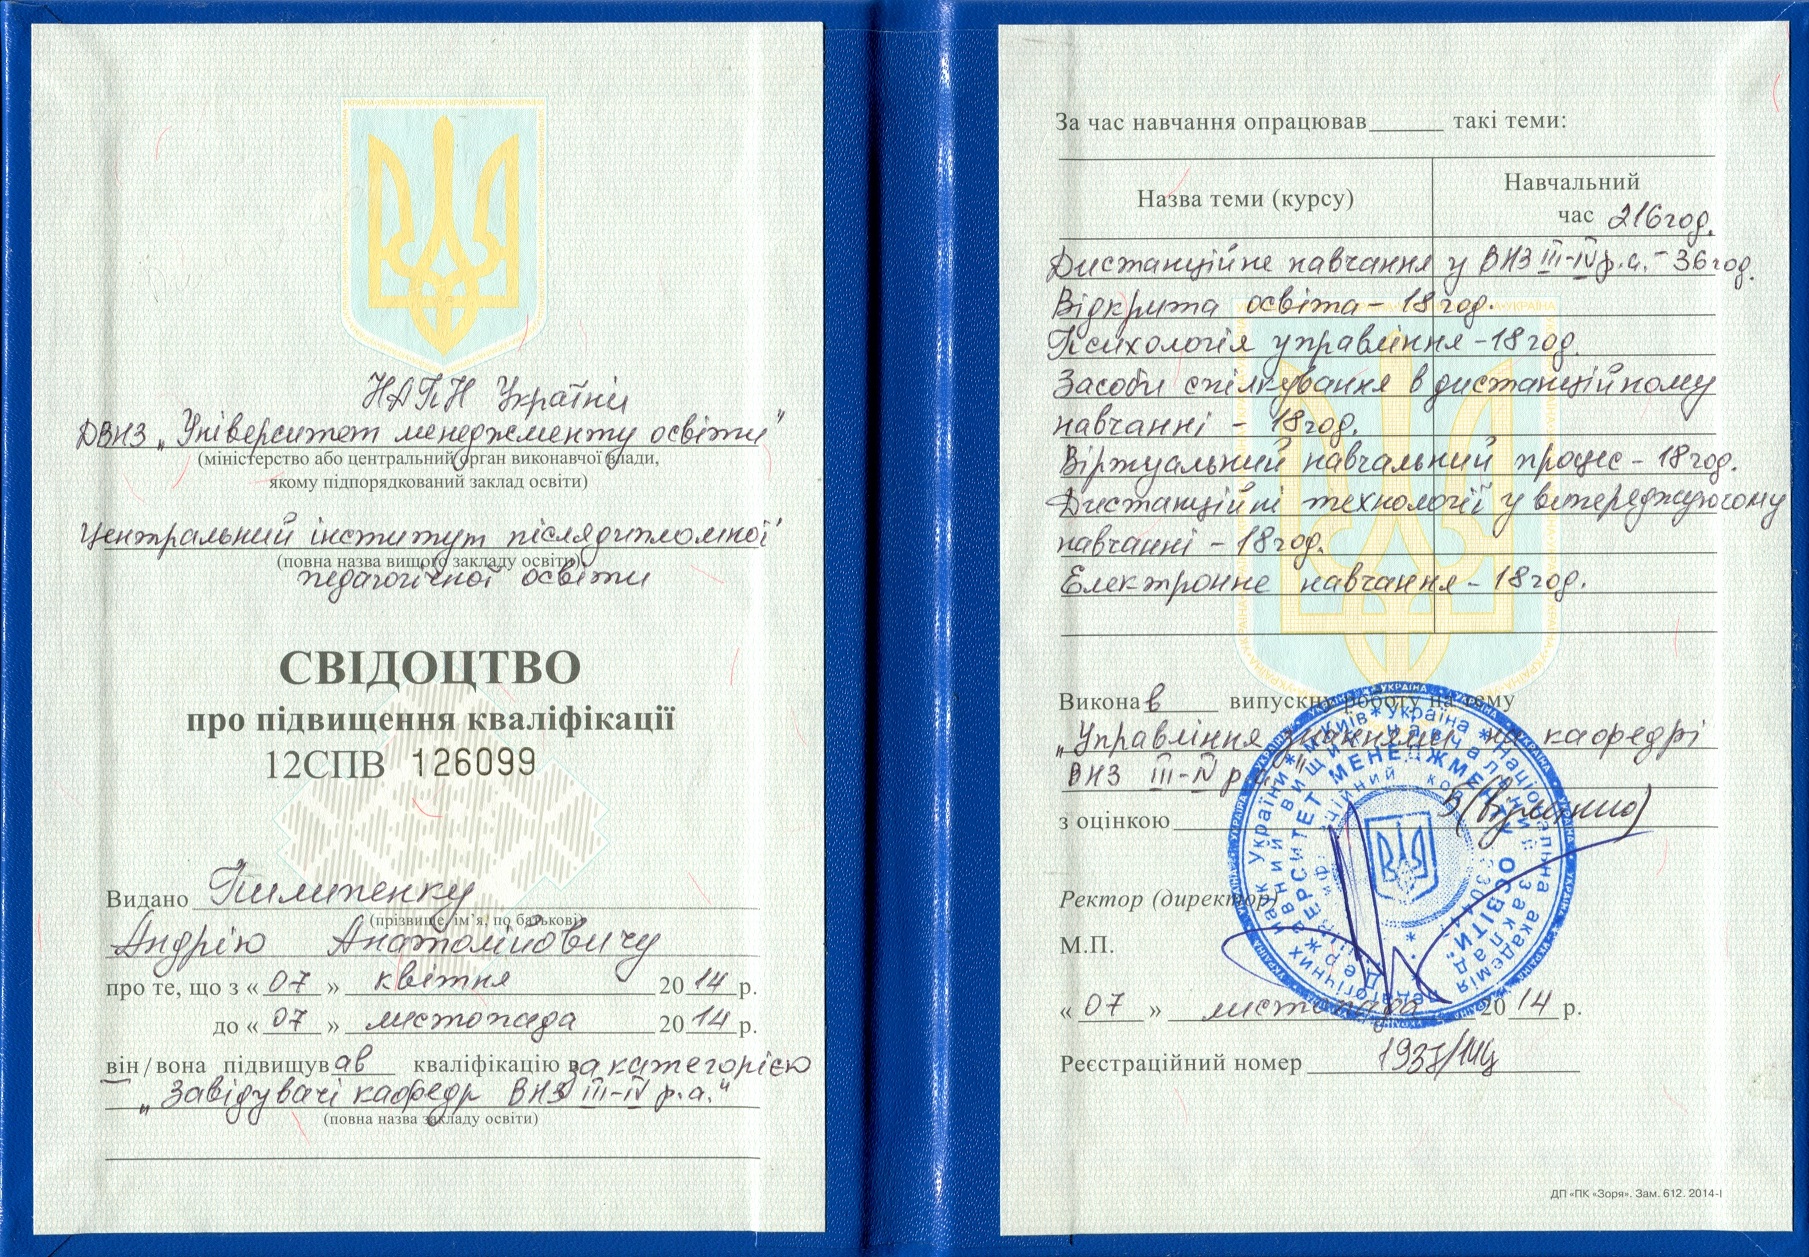 НАПН України
ДВНЗ „Університет менеджменту освіти"
(міністерство або центральний орган виконавчої влади,
якому підпорядкований заклад освіти)
Центральний інститут післядипломної
(повна назва вищого закладу освіти)
педагогічної освіти
СВІДОЦТВО
про підвищення кваліфікації
12СПВ 126099
Видано Пилипенку
(прізвище, ім’я, по батькові)
Андрію Анатолійовичу
про те, що з « 07 » квітня 2014 р.
до « 07 » листопада 2014 р.
він / вона підвищував кваліфікацію в за категорією
„Завідувачі кафедр ВНЗ III-IV р.а."
(повна назва закладу освіти)
За час навчання опрацював______ такі теми:
Назва теми (курсу)
Навчальний
час 216год.
Дистанційне навчання у ВНЗ III-IV р.а. - 36год.
Відкрита освіта - 18год.
Психологія управління - 18год.
Засоби спілкування в дистанційному
навчанні - 18год.
Віртуальний навчальний процес - 18год.
Дистанційні технології у випереджуючому
навчанні - 18год.
Електронне навчання - 18год.
Виконав випускну роботу на тему
„Управління знаннями на кафедрі
ВНЗ III-IV р.а."
з оцінкою 5 (відмінно)
Ректор (директор)
М.П.
« 07 » листопада 2014 р.
Реєстраційний номер
УНІВЕРСИТЕТ МЕНЕДЖМЕНТУ ОСВІТИ
ДП «ПК «Зоря». Зам. 612. 2014-І